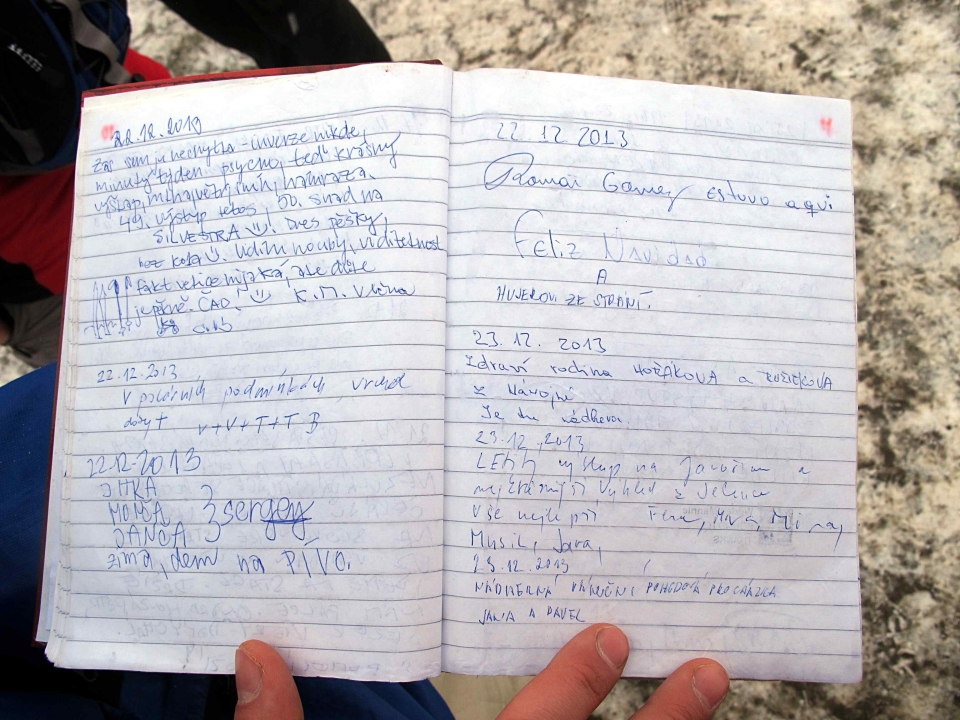 22.12.2013
zas sem ju nechytla - inverze nikde,
minutý týden psycho, teď krásný
výstup, mlha, větr, sníh, námraza.
49. výstup letos, 50. snad na
SILVESTRA. Dnes pěšky,
bez kola. Vidim houby, viditelnost
fakt velice nízká, ale dole
je pěkně. ČAO! K.M. Vlčna
22.12.2013
V polárních podmínkách vrchol
dobyt V+V+T+T B
22.12.2013
JITKA
MONČA
DANČA
3 sergey
zima, dem na PÍVO.
22.12.2013
Roman Gomez estuvo aqui
Feliz Navidad
A
HUJEROVI ZE STRÁNÍ.
23.12.2013
Zdraví rodina HOŘÁKOVA a
z Návojné
Je tu nádherně
23.12.2013
výstup na Javořinu a
výhled z
Vše nejlepší
Musil, Jara,
23.12.2013
NÁDHERNÁ VÁNOČNÍ POHODOVÁ PROCHÁZKA
JANA A PAVEL